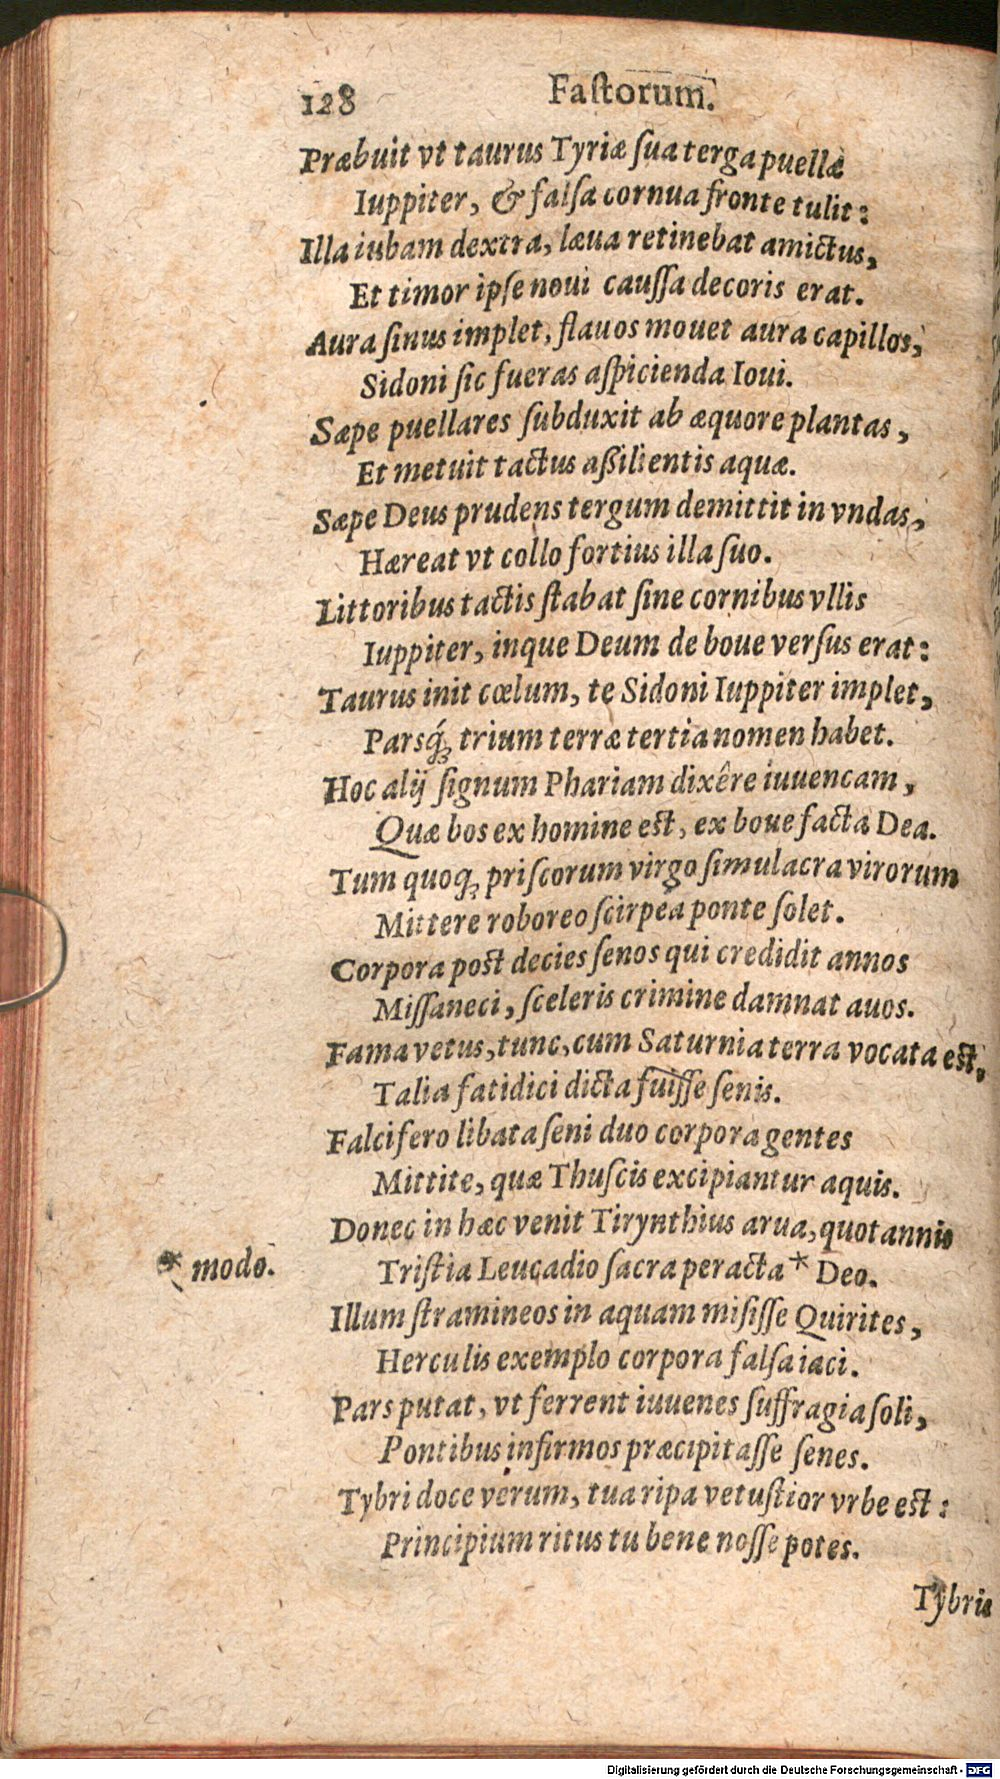 128 Faſtorum.
Præbuit vt taurus Tyriæ ſua terga puellæ
Iuppiter, & falſa cornua fronte tulit:
Illa iubam dextra, læua retinebat amictus,
Et timor ipſe noui cauſſa decoris erat.
Aura ſinus implet, flauos mouet aura capillos,
Sidoni ſic fueras aſpicienda Ioui.
Sæpe puellares ſubduxit ab æquore plantas,
Et metuit tactus aßilientis aquæ.
Sæpe Deus prudens tergum demittit in vndas,
Hæreat vt collo fortius illa ſuo.
Littoribus tactis ſtabat ſine cornibus vllis
Iuppiter, inque Deum de boue verſus erat:
Taurus init cœlum, te Sidoni Iuppiter implet,
Parsq́; trium terræ tertia nomen habet.
Hoc alij ſignum Phariam dixêre iuuencam,
Quæ bos ex homine eſt, ex boue facta Dea.
Tum quoq; priſcorum virgo ſimulacra virorum
Mittere roboreo ſcirpea ponte ſolet.
Corpora poſt decies ſenos qui credidit annos
Miſſa neci, ſceleris crimine damnat auos.
Fama vetus, tunc, cum Saturnia terra vocata eſt,
Talia fatidici dicta fuiſſe ſenis.
Falcifero libata ſeni duo corpora gentes
Mittite, quæ Thuſcis excipiantur aquis.
Donec in hæc venit Tirynthius arua, quot annis
* modo. Triſtia Leucadio ſacra peracta * Deo.
Illum ſtramineos in aquam miſiſſe Quirites,
Herculis exemplo corpora falſa iaci.
Pars putat, vt ferrent iuuenes ſuffragia ſoli,
Pontibus infirmos præcipitaſſe ſenes.
Tybri doce verum, tua ripa vetuſtior vrbe eſt:
Principium ritus tu bene noſſe potes.
Tybris
Digitalisierung gefördert durch die Deutsche Forschungsgemeinschaft - DFG